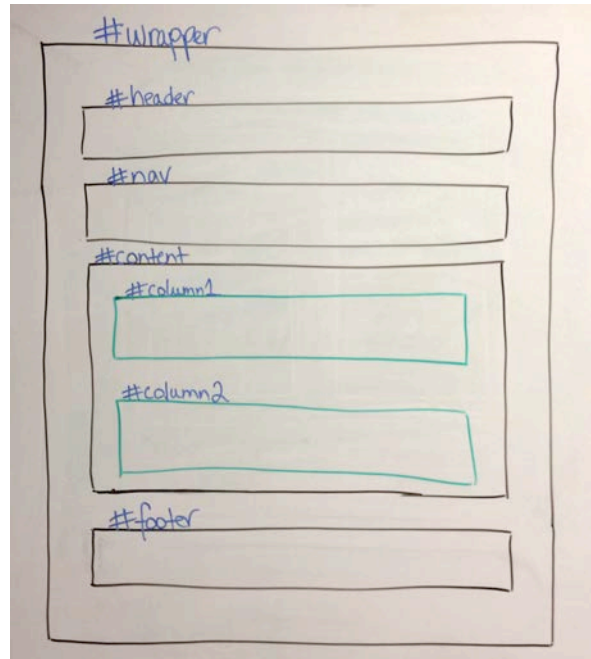 #wrapper
#header
#nav
#content
#column1
#column2
#footer